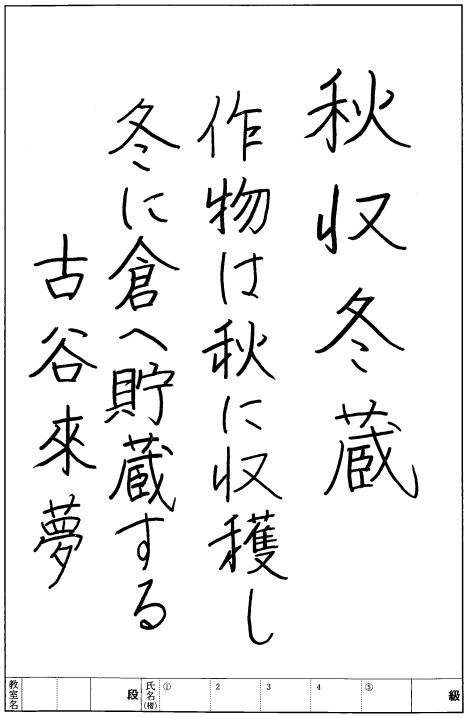 秋収冬蔵
作物は秋に収穫し
冬に倉へ貯蔵する
古谷來夢
教室名
段
氏名(楷)
①
2
3
4
⑤
級